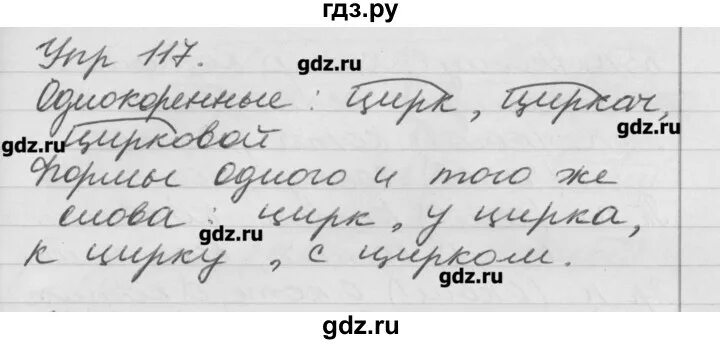 гдз.ру
Упр 117.
gdz.ru
Однокоренные: цирк, циркач,
gdz.ru
цирковой
gdz.ru
Формы одного и того же
слова: цирк, у цирка,
gdz.ru
к цирку, с цирком.
gdz.ru
gdz.ru